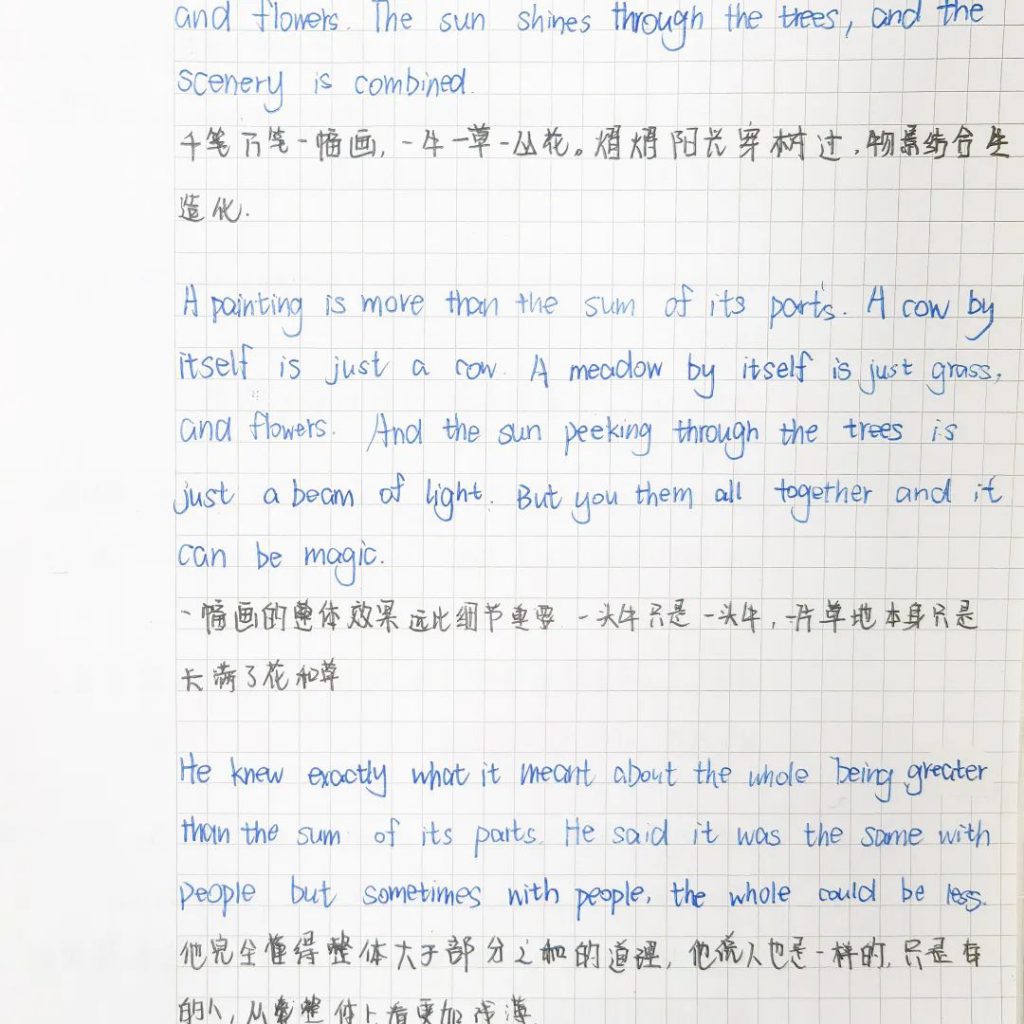 and flowers. The sun shines through the trees, and the
scenery is combined.
千笔万笔一幅画,一牛一草一丛花。熠熠阳光穿树过,物景结合生
造化.
A painting is more than the sum of its parts. A cow by
itself is just a cow. A meadow by itself is just grass,
and flowers. And the sun peeking through the trees is
just a beam of light. But you them all together and it
can be magic.
一幅画的整体效果远比细节重要 一头牛只是一头牛,一片草地本身只是
长满了花和草
He knew exactly what it meant about the whole being greater
than the sum of its parts. He said it was the same with
people but sometimes with people, the whole could be less.
他完全懂得整体大于部分之和的道理,他说人也是一样的,只是有
的人,从整体上看更加浅薄